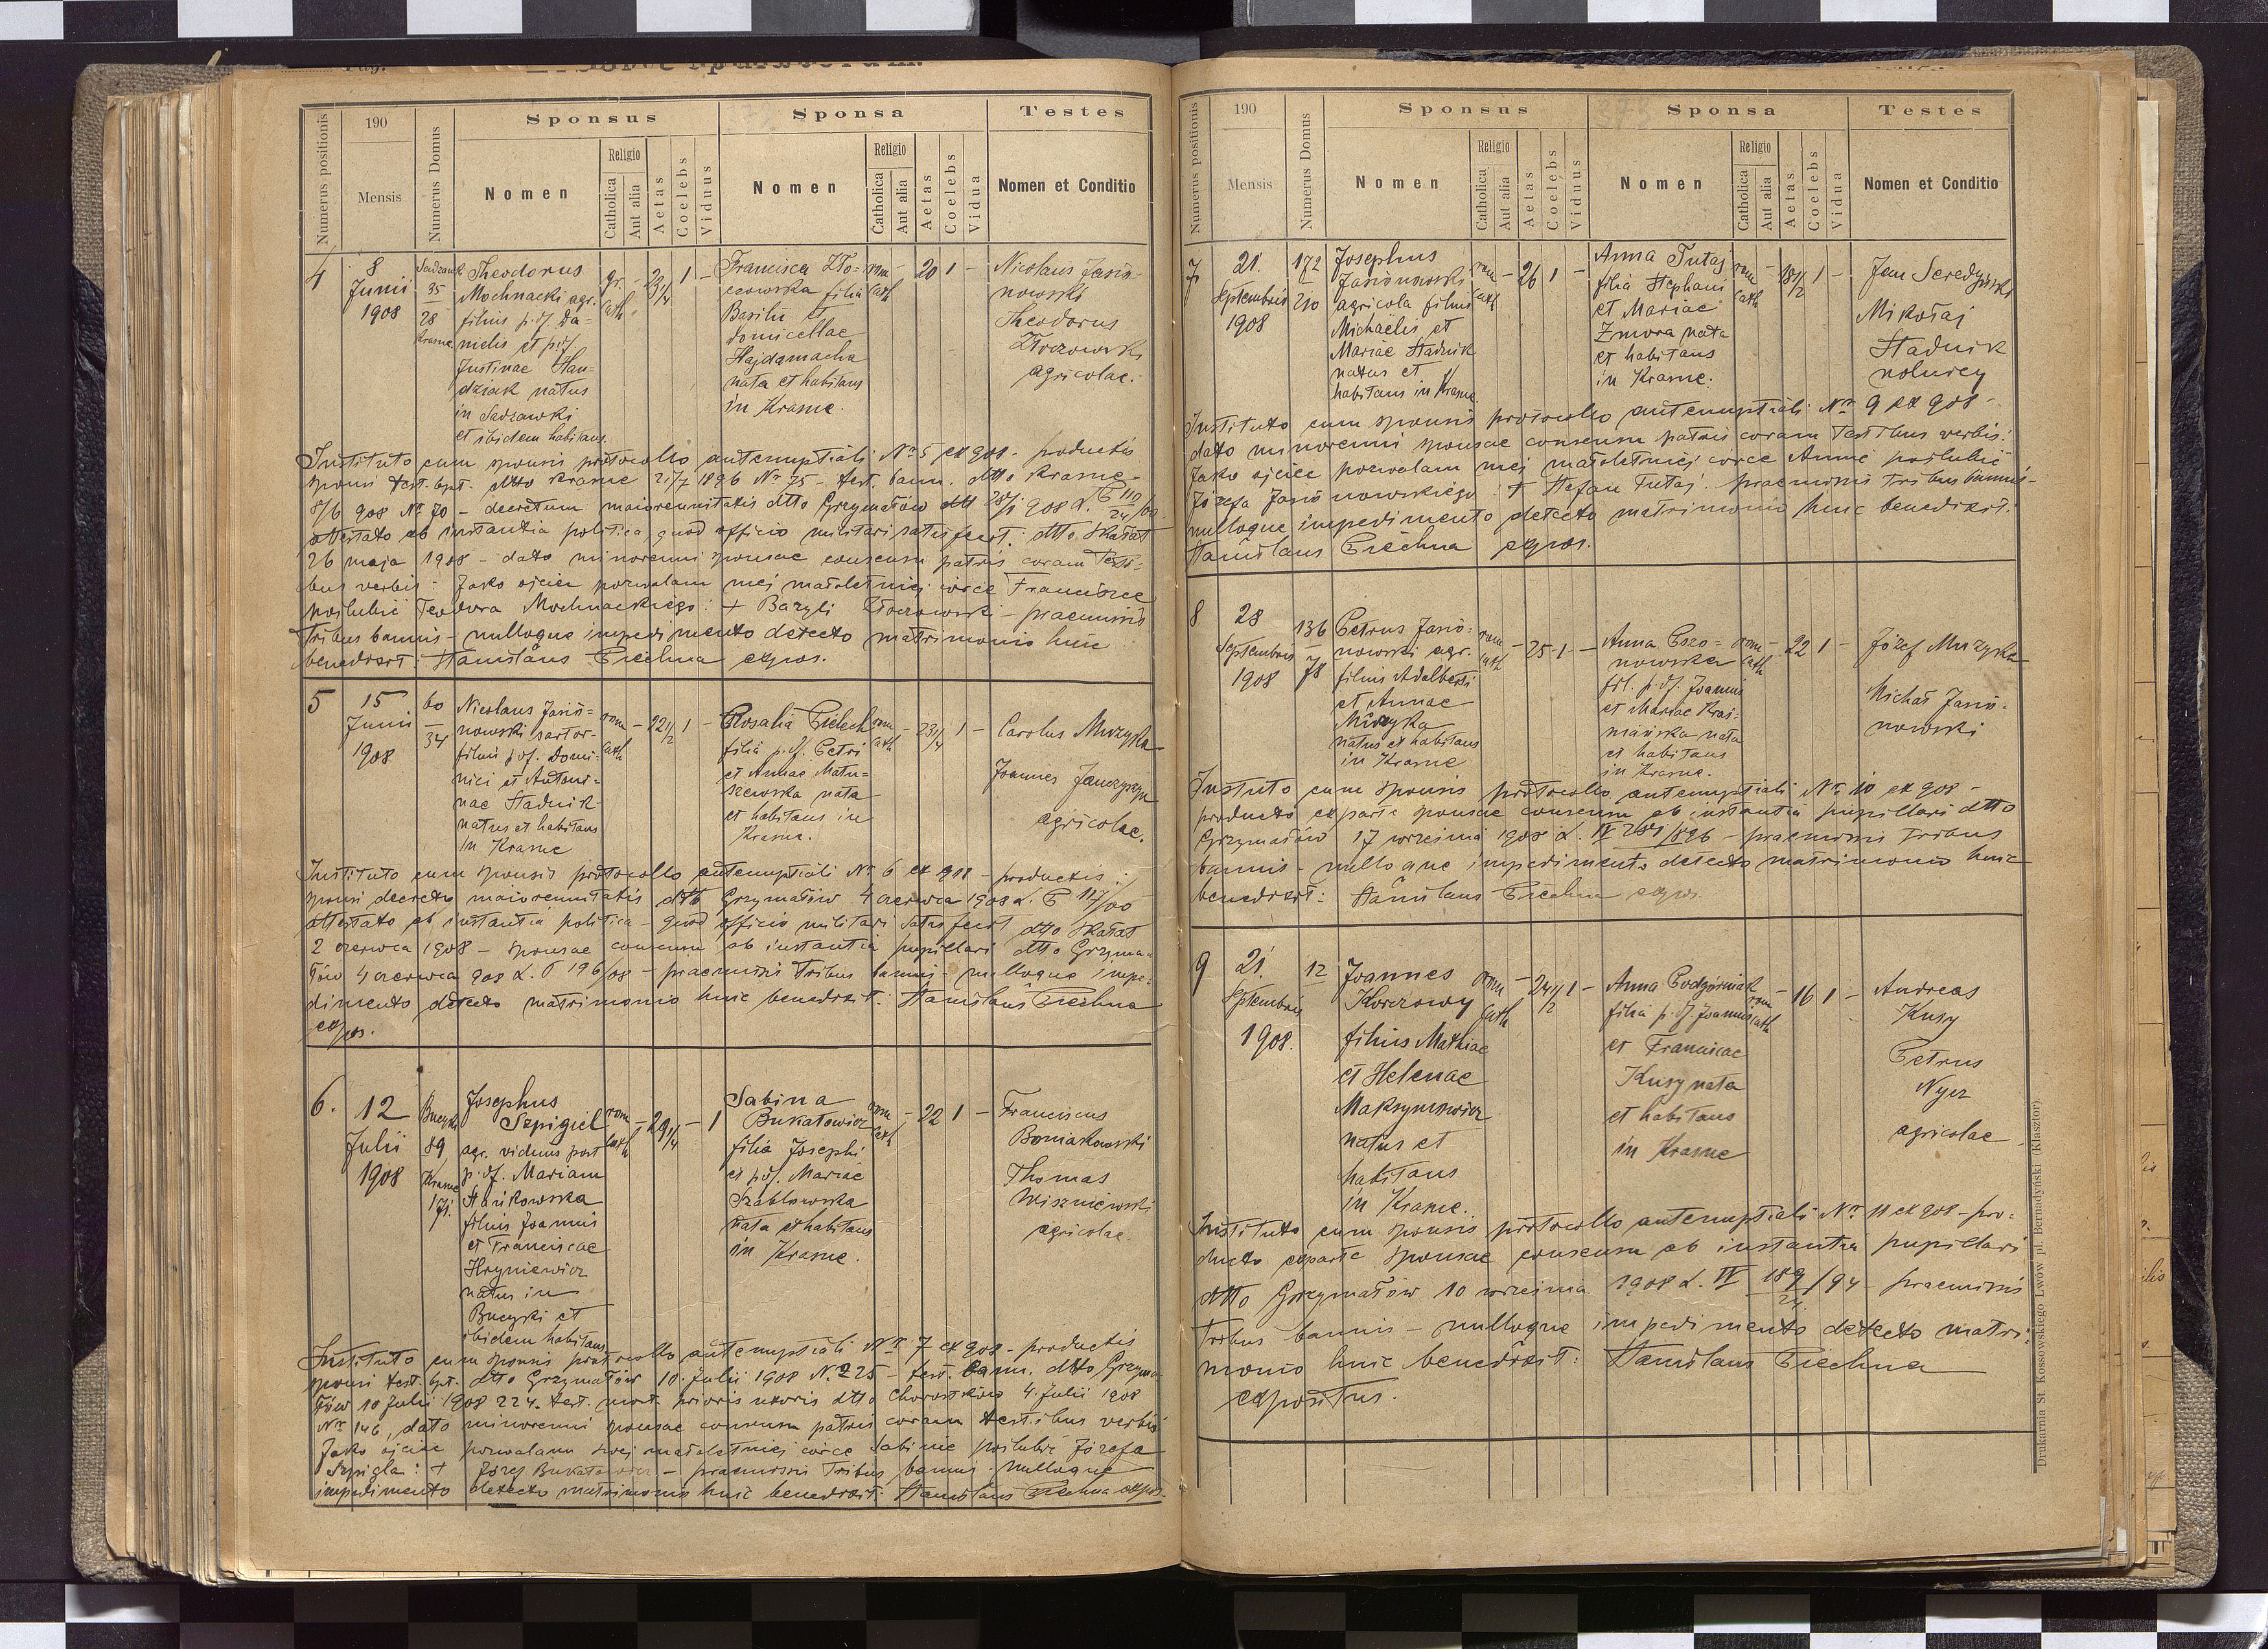 Pag.
Numerus positionis
190
Mensis
Numerus Domus
Sponsus
Nomen
Religio
Catholica
Aut alia
Aetas
Coelebs
Viduus
Sponsa
Nomen
Religio
Catholica
Aut alia
Aetas
Coelebs
Vidua
Testes
Nomen et Conditio
4
8
Junii
1908
35
28
Krasne
Theodorus
Mochnacki agr.
filius p. df. Da=
nielis et p. df.
Justinae Han=
dziak natus
in Sadzawki
et ibidem habitans.
gr.
cath.
23 1/4
1 -
Francisca Zło=
czowska filia
Basilii et
Domicellae
Hajdamacha
nata et habitans
in Krasne.
rom
cath
20 1 -
Nicolaus Jasio-
nowski
Theodorus
Złoczowski
agricolae.
Instituto cum sponsis protocollo antenuptiali Nr 5 ex 908 - productis
sponsi test. bpt. dtto Krasne 21/7 1896 Nr 75 - test. bann. dtto Krasne
8/6 908 Nr 70 - decretum maiorennitatis dtto Grzymałów
attestato ab instantia politica, quod officio militari satisfecit. dtto Skałat
26 maja 1908 - dato minorenni sponsae consensu patris coram testi=
bus verbis: Jako ojciec pozwalam mej małoletniej córce Franciszce
poślubić Teodora Mochnackiego: + Bazyli Złoczowski - praemissis
tribus bannis - nulloque impedimento detecto matrimonio huic
benedixit: Stanislaus Piechna expos.
5
15
Junii
1908
60
34
Nicolaus Jasio=
nowski sartor-
filius p. df. Domi=
nici et Antoni=
nae Stadnik
natus et habitans
in Krasne
rom
cath
22 1/2
1 -
Rosalia Pielech
filia p. df. Petri
et Annae Matu=
szewska nata
et habitans in
Krasne.
rom
cath
23 1/4
1 -
Carolus Muzyka
Joannes Janczyszyn
agricolae.
Instituto cum sponsis protocollo antenuptiali Nr 6 ex 908 - productis:
sponsi decreto maiorennitatis dtto Grzymałów 4 czerwca 1908 L. P 117/00
attestato ab instantia politica - quod officio militari satisfecit dtto Skałat
2 czerwca 1908 - sponsae consensu ab instantia pupillari dtto Grzyma=
łów 4 czerwca 908 L. P 196/08 - praemissis tribus bannis - nulloque impe=
dimento detecto matrimonio huic benedixit: Stanislaus Piechna
expos.
6.
12
Julii
1908
Bucyki
89
Krasne
171.
Josephus
Szpigiel
agr. viduus post
p. df. Mariam
Stańkowska
filius Joannis
et Franciscae
Hryniewicz
natus in
Bucyki et
ibidem habitans
rom
cath
29 1/4
- 1
Sabina
Bukatowicz
filia Josephi
et p. df. Mariae
Szablowska
nata et habitans
in Krasne.
rom
cath
22 1 -
Franciscus
Boniakowski
Thomas
Wiszniewski
agricolae.
Instituto cum sponsis protocollo antenuptiali Nr 7 ex 908 - productis
sponsi test. bpt. dtto Grzymałów 10. Julii 1908 N. 225 - test. bann. dtto Grzyma
łów 10 Julii 1908 224. test. mort. prioris uxoris dtto Chorostków 4. Julii 1908
Nr 146, dato minorenni sponsae consensu patris coram testibus verbis:
Jako ojciec pozwalam swej małoletniej córce Sabinie poślubić Józefa
Szpigla: + Józef Bukatowicz - praemissis tribus bannis nulloque
impedimento detecto matrimonio huic benedixit: Stanislaus Piechna expos.
Numerus positionis
190
Mensis
Numerus Domus
Sponsus
Nomen
Religio
Catholica
Aut alia
Aetas
Coelebs
Viduus
Sponsa
Nomen
Religio
Catholica
Aut alia
Aetas
Coelebs
Vidua
Testes
Nomen et Conditio
7
21.
Septembris
1908
172
210
Josephus
Jasionowski
agricola filius
Michaëlis et
Mariae Stadnik
natus et
habitans in Krasne.
rom
cath
26 1 -
Anna Tutaj
filia Stephani
et Mariae
Zmora nata
et habitans
in Krasne.
rom
cath
18 1/2
1 -
Jan Seredyński
Mikołaj
Stadnik
rolnicy
Instituto cum sponsis protocollo antenuptiali Nr 9 ex 908 -
dato minorenni sponsae consensu patris coram testibus verbis:
Jako ojciec pozwalam mej małoletniej córce Annie poślubić
Józefa Jasionowskiego: + Stefan Tutaj. praemissis tribus bannis -
nulloque impedimento detecto matrimonio huic benedixit:
Stanislaus Piechna expos.
8
28
Septembris
1908
136
78
Petrus Jasio=
nowski agr.
filius Adalberti
et Annae
Muzyka
natus et habitans
in Krasne
rom
cath
25 1 -
Anna Cszo=
nowska
fil. p. df. Joannis
et Mariae Kras=
mańska nata
et habitans
in Krasne.
rom
cath
22 1 -
Józef Muzyka
Michał Jasio-
nowski
Instituto cum sponsis protocollo antenuptiali Nr 10 ex 908 -
producto ex parte sponsae consensu ab instantia pupillari dtto
Grzymałów 17 września 1908 L. IV - praemissis tribus
bannis - nulloque impedimento detecto matrimonio huic
benedixit: Stanislaus Piechna expos.
9
21.
Septembris
1908.
12
Joannes
Korczowy
filius Mathiae
et Helenae
Maksymowicz
natus et
habitans
in Krasne.
rom
cath
24 1/2
1 -
Anna Podgórniak
filia p. df. Joannis
et Franciscae
Kusy nata
et habitans
in Krasne
rom
cath
16 1 -
Andreas
Kusy
Petrus
Nycz
agricolae
Instituto cum sponsis protocollo antenuptiali Nr 11 ex 908 - pro=
ducto exparte sponsae consensu ab instantia pupillari
dtto Grzymałów 10 września 1908 L. IV 189/94 - praemissis
24
tribus bannis - nulloque impedimento detecto matri=
monio huic benedixit: Stanislaus Piechna
expositus.
Drukarnia St. Kossowskiego Lwów pl. Bernadyński (Klasztor)